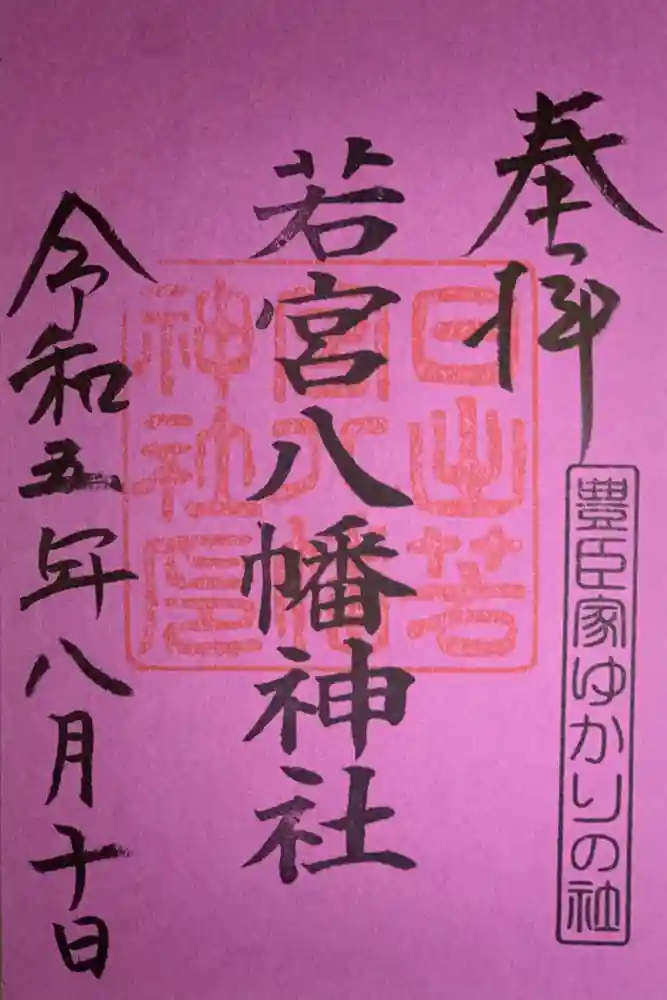 奉拝
豊臣家ゆかりの社
若宮八幡神社
日出若
宮八幡
神社印
令和五年八月十日